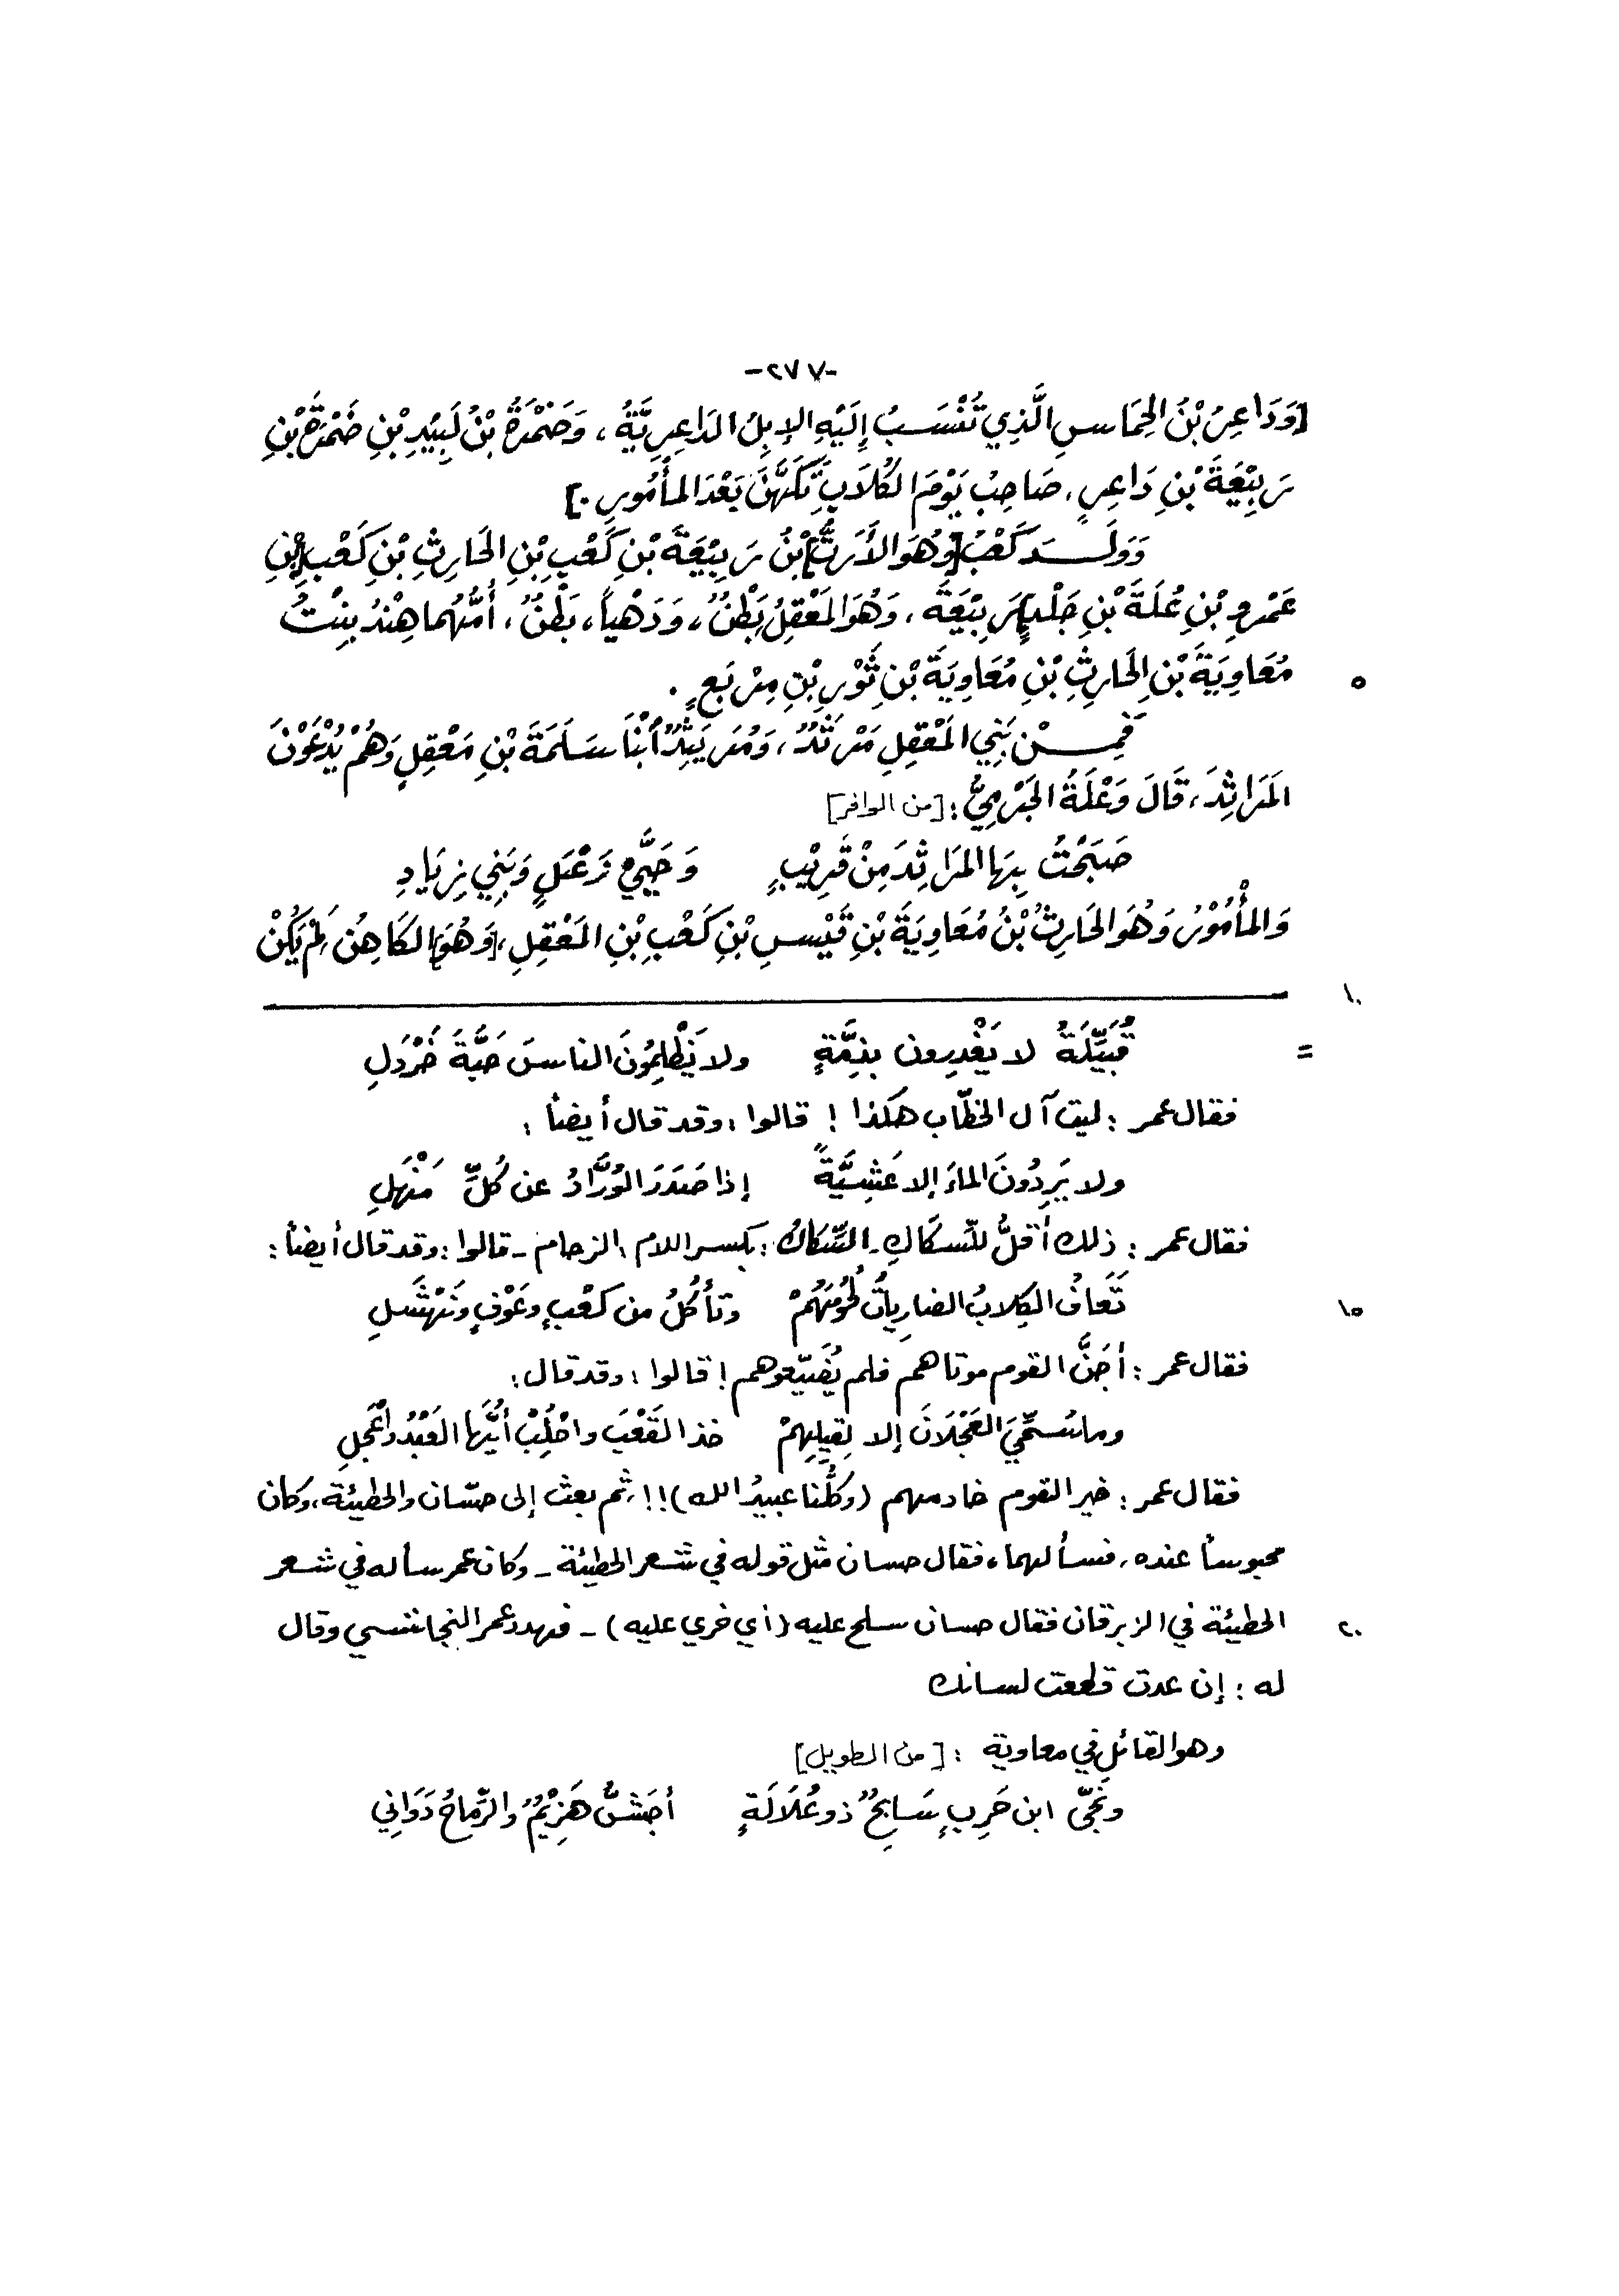 -٢٧٧-
[وَدَاعِرُ بْنُ الحِمَاسِ الَّذِي تُنْسَبُ إِلَيْهِ الإِبِلُ الدَاعِرِيَّةُ، وَضَمْرَةُ بْنُ لَبِيْدِ بْنِ ضَمْرَةَ بْنِ
رَبِيْعَةَ بْنِ دَاعِرٍ، صَاحِبُ يَوْمَ الكُلَابِ تَكَهَّنَ بَعْدَ المأْمُورِ.]
وَوَلَـدَ كَعْبُ [وَهُوَ الأَرَتُّ] بْنُ رَبِيْعَةَ بْنِ كَعْبِ بْنِ الحَارِثِ بْنِ كَعْبِ [بْنِ
عَمْرِو بْنِ عُلَةَ بْنِ جَلْدٍ] رَبِيْعَةَ، وَهُوَ المَعْقِلُ بَطْنٌ، وَدَهْياً، بَطْنٌ، أُمُّهُما هِنْدُ بِنْتُ
مُعَاوِيَةَ بْنِ الحَارِثِ بْنِ مُعَاوِيَةَ بْنِ ثَوْرِ بْنِ مِرْبَعٍ. ٥
فَمِـنْ بَنِي المَعْقِلِ مَرْثَدٌ، وَمُرَيْثِدٌ أَبْنَا سَلَمَةَ بْنِ مَعْقِلٍ وَهُمْ يُدْعَوْنَ
المَرَاثِدَ، قَالَ وَعْلَةُ الجَرْمِيُّ: [من الوافر]
صَبَحْتُ بِهَا المَرَاثِدَ مِنْ قَرِيْبٍ وَحَيَّيْ زَعْبَلٍ وَبَنِي زِيَادِ
وَالمأْمُوْرُ وَهُوَ الحَارِثُ بْنُ مُعَاوِيَةَ بْنِ قَيْسِ بْنِ كَعْبِ بْنِ المَعْقِلِ، [وَهُوَ] الكَاهِنُ، لَمْ يَكُنْ
١٠
= قُبَيِّلَةٌ لا يَغْدِرون بذِمَّةٍ ولا يَظْلِمُونَ الناسَ حَبَّةَ خَرْدَلِ
فقال عمر: ليت آل الخطّاب هكذا! قالوا: وقد قال أيضاً:
ولا يَرِدُونَ الماءَ إلا عَشِيَّةً إذا صَدَرَ الوُرَّادُ عن كُلِّ مَنْهَلِ
فقال عمر: ذلك أقلُّ للسِّكَاكِ - السِّكاكُ: بكسر اللام: الزحام - قالوا: وقد قال أيضاً:
تَعَافُ الكِلابُ الضارِياتُ لُحُومَهُمْ وتأكُلُ من كَعْبٍ وعَوْفٍ ونَهْشَلِ ١٥
فقال عمر: أجَنَّ القوم موتاهم فلم يُضَيّعوهم! قالوا: وقد قال:
وما سُمِّيَ العَجْلَانَ إلا لِقِيلِهِمْ خذ القَعْبَ واحْلُبْ أيُّها العَبْدُ واعْجَلِ
فقال عمر: خير القوم خادمهم (وكلُّنا عبيدُ الله)!! ثم بعث إلى حسّان والحطيئة، وكان
محبوساً عنده، فسألهما، فقال حسان مثل قوله في شعر الحطيئة - وكان عمر سأله في شعر
الحطيئة في الزبرقان فقال حسان سلح عليه (أي خري عليه) - فهدد عمر النجاشي وقال ٢٠
له: إن عدت قطعت لسانك
وهو القائل في معاوية: [من الطويل]
ونَجّى ابن حَربٍ سَابِحٌ ذو عُلَالَةٍ أجَشُّ هَزِيْمٌ والرّماحُ دَوَانِي